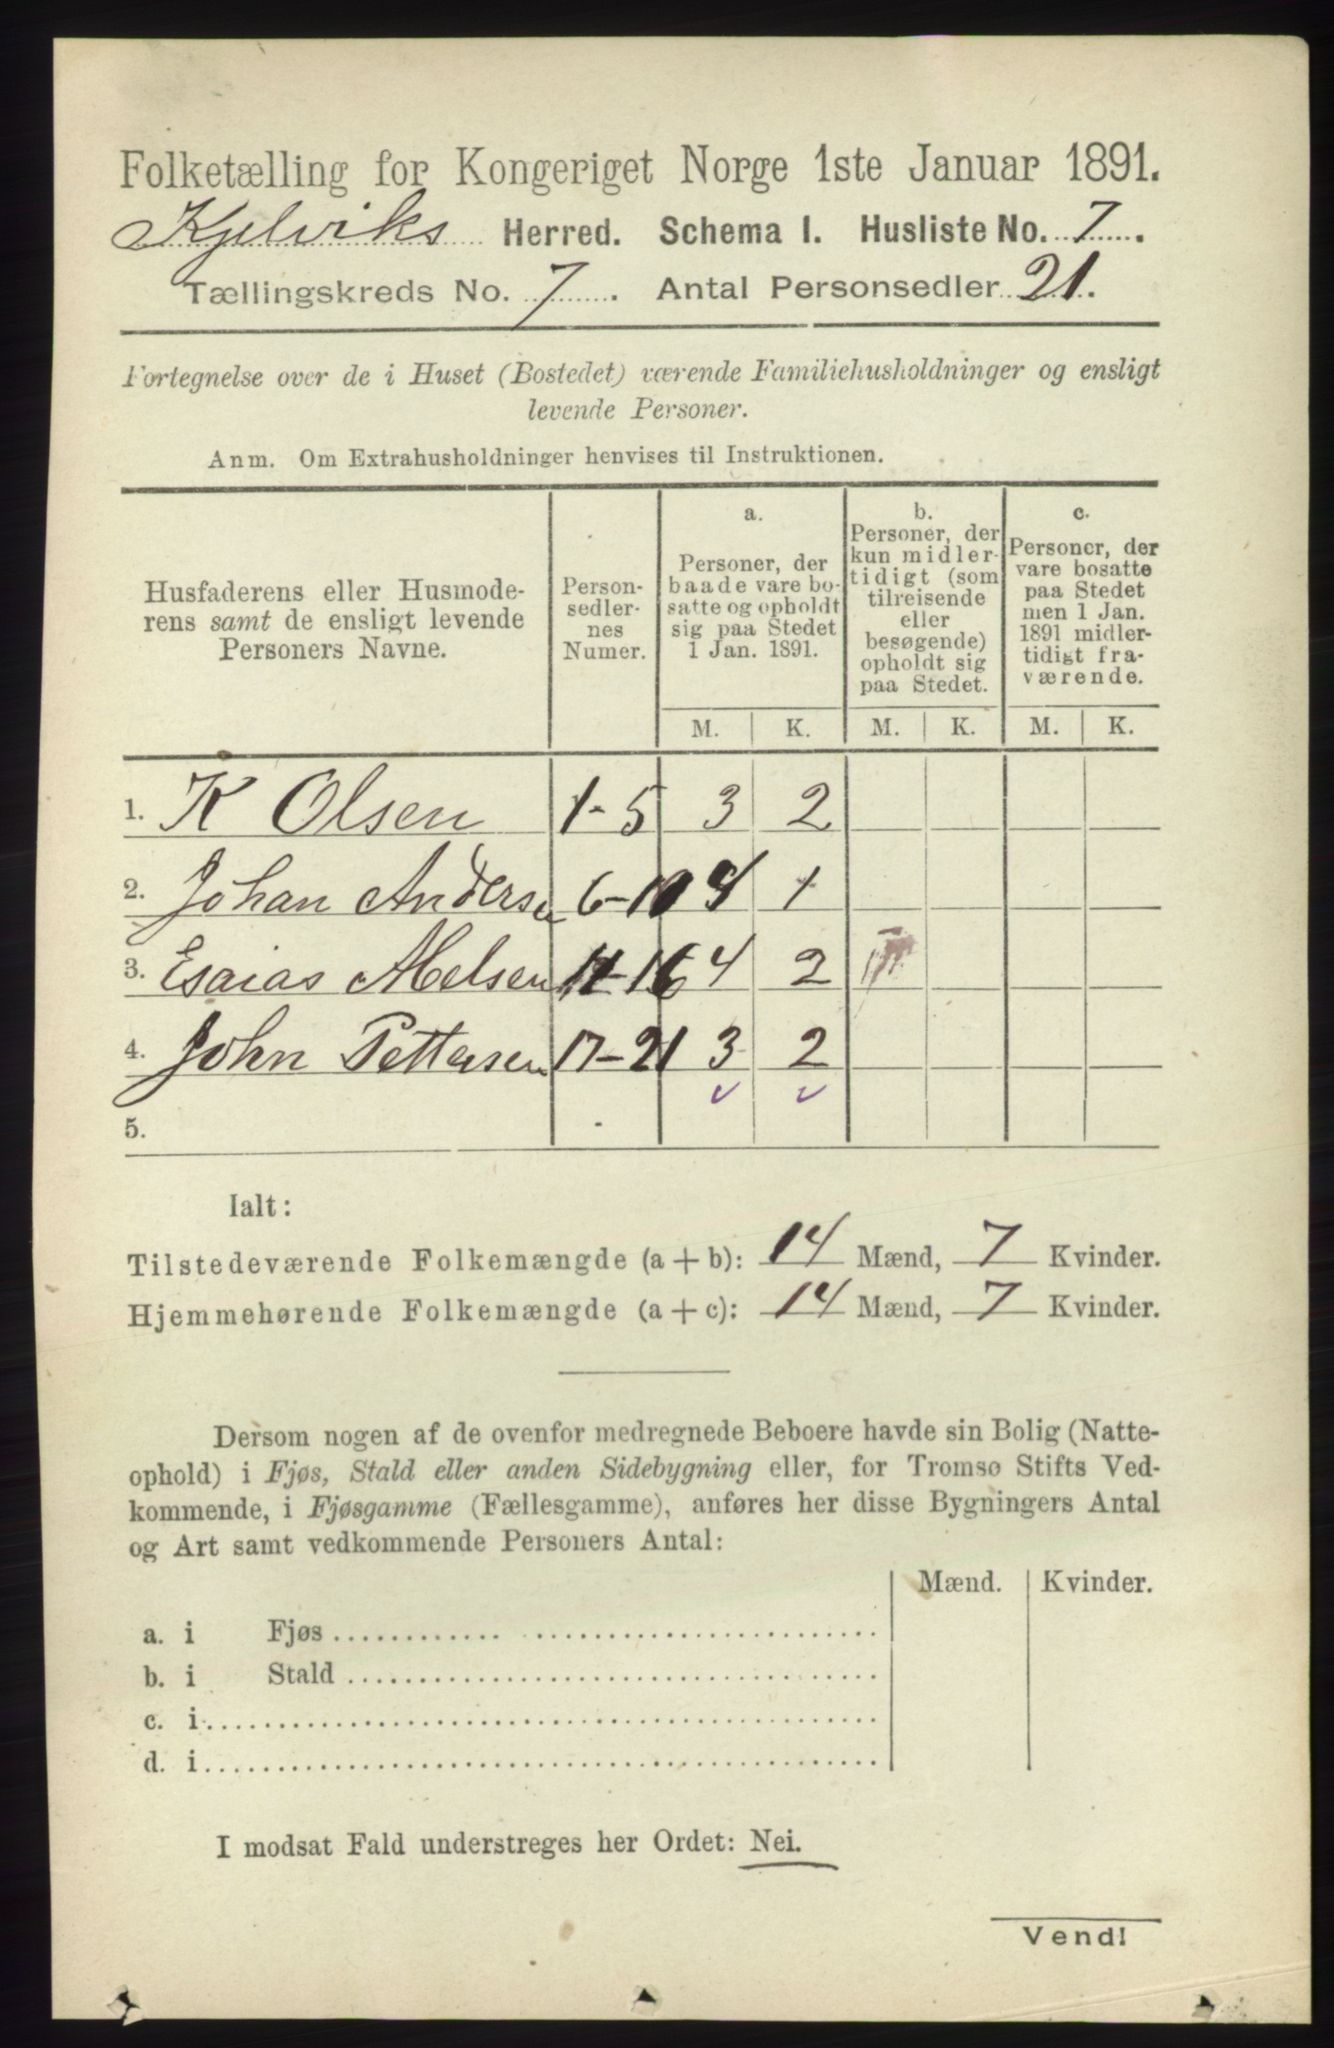 Folketælling for Kongeriget Norge 1ste Januar 1891.
Kjelviks Herred. Schema I. Husliste No. 7.
Tællingskreds No. 7. Antal Personsedler 21.
Fortegnelse over de i Huset (Bostedet) værende Familiehusholdninger og ensligt
levende Personer.
Anm. Om Extrahusholdninger henvises til Instruktionen.
Husfaderens eller Husmode-
rens samt de ensligt levende
Personers Navne.
Person-
sedler-
nes
Numer.
a.
Personer, der
baade vare bo-
satte og opholdt
sig paa Stedet
1 Jan. 1891.
b.
Personer, der
kun midler-
tidigt (som
tilreisende
eller
besøgende)
opholdt sig
paa Stedet.
c.
Personer, der
vare bosatte
paa Stedet
men 1 Jan.
1891 midler-
tidigt fra-
værende.
M. K. M. K. M. K.
1. K Olsen 1-5 3 2
2. Johan Andersen 6-10 4 1
3. Esaias Melsen 11-16 4 2
4. John Pettersen 17-21 3 2
5.
Ialt:
Tilstedeværende Folkemængde (a + b): 14 Mænd, 7 Kvinder.
Hjemmehørende Folkemængde (a + c): 14 Mænd, 7 Kvinder.
Dersom nogen af de ovenfor medregnede Beboere havde sin Bolig (Natte-
ophold) i Fjøs, Stald eller anden Sidebygning eller, for Tromsø Stifts Ved-
kommende, i Fjøsgamme (Fællesgamme), anføres her disse Bygningers Antal
og Art samt vedkommende Personers Antal:
Mænd. Kvinder.
a. i Fjøs
b. i Stald
c. i
d. i
I modsat Fald understreges her Ordet: Nei.
Vend!